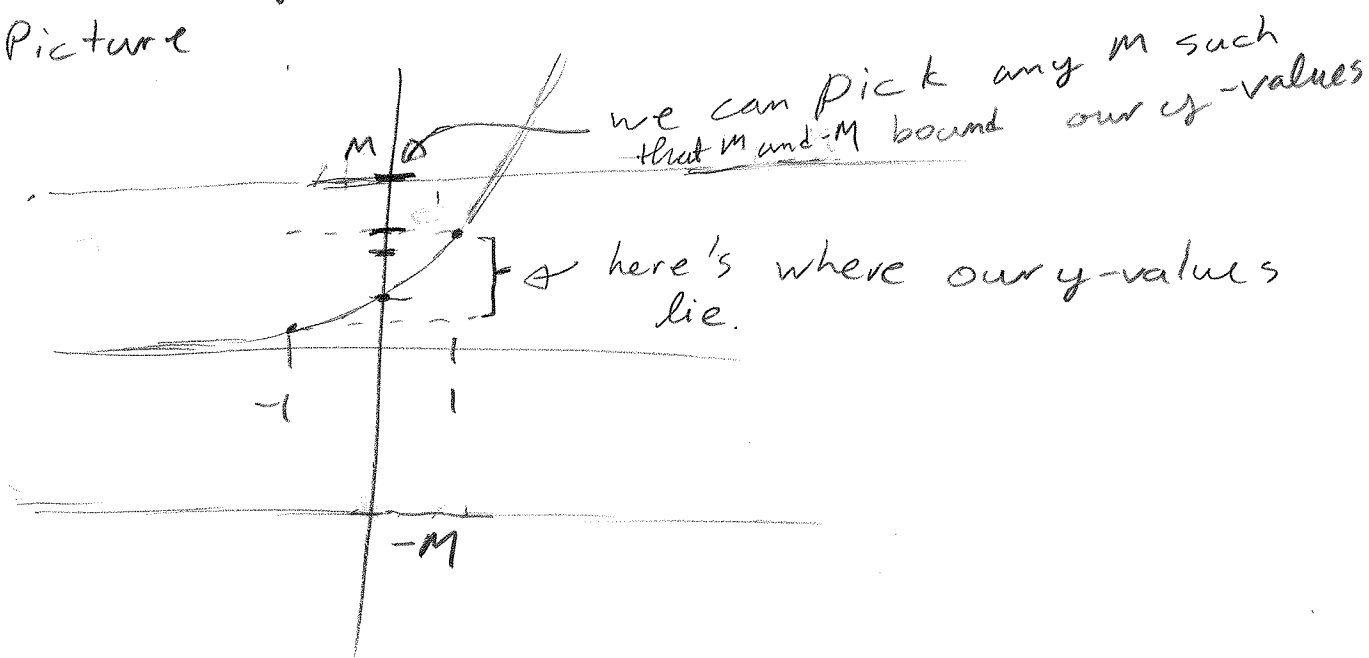 Picture
we can pick any M such
that M and -M bound our y-values
M
here's where our y-values
lie.
-1
1
-M